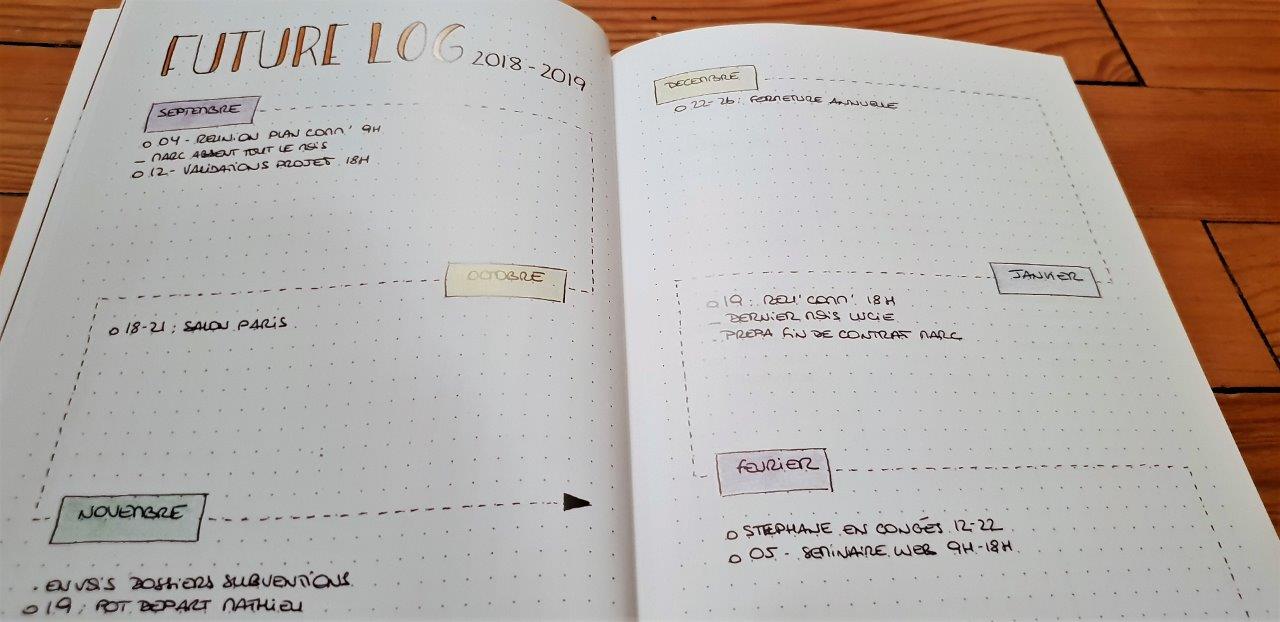 FUTURE LOG 2018-2019
SEPTEMBRE
o 04 - REUNION PLAN COMM' 9H
– MARC ABSENT TOUT LE MOIS
o 12 - VALIDATIONS PROJET 18H
OCTOBRE
o 18-21 : SALON PARIS
NOVEMBRE
. ENVOIS DOSSIERS SUBVENTIONS
o 19 : POT DEPART MATHIEU
DECEMBRE
o 22-26 : FERMETURE ANNUELLE
JANVIER
o 19 : REU' COMM' 18H
– DERNIER MOIS LUCIE
. PREPA FIN DE CONTRAT MARC
FEVRIER
o STEPHANE EN CONGÉS 12-22
o 05 - SEMINAIRE WEB 9H-18H